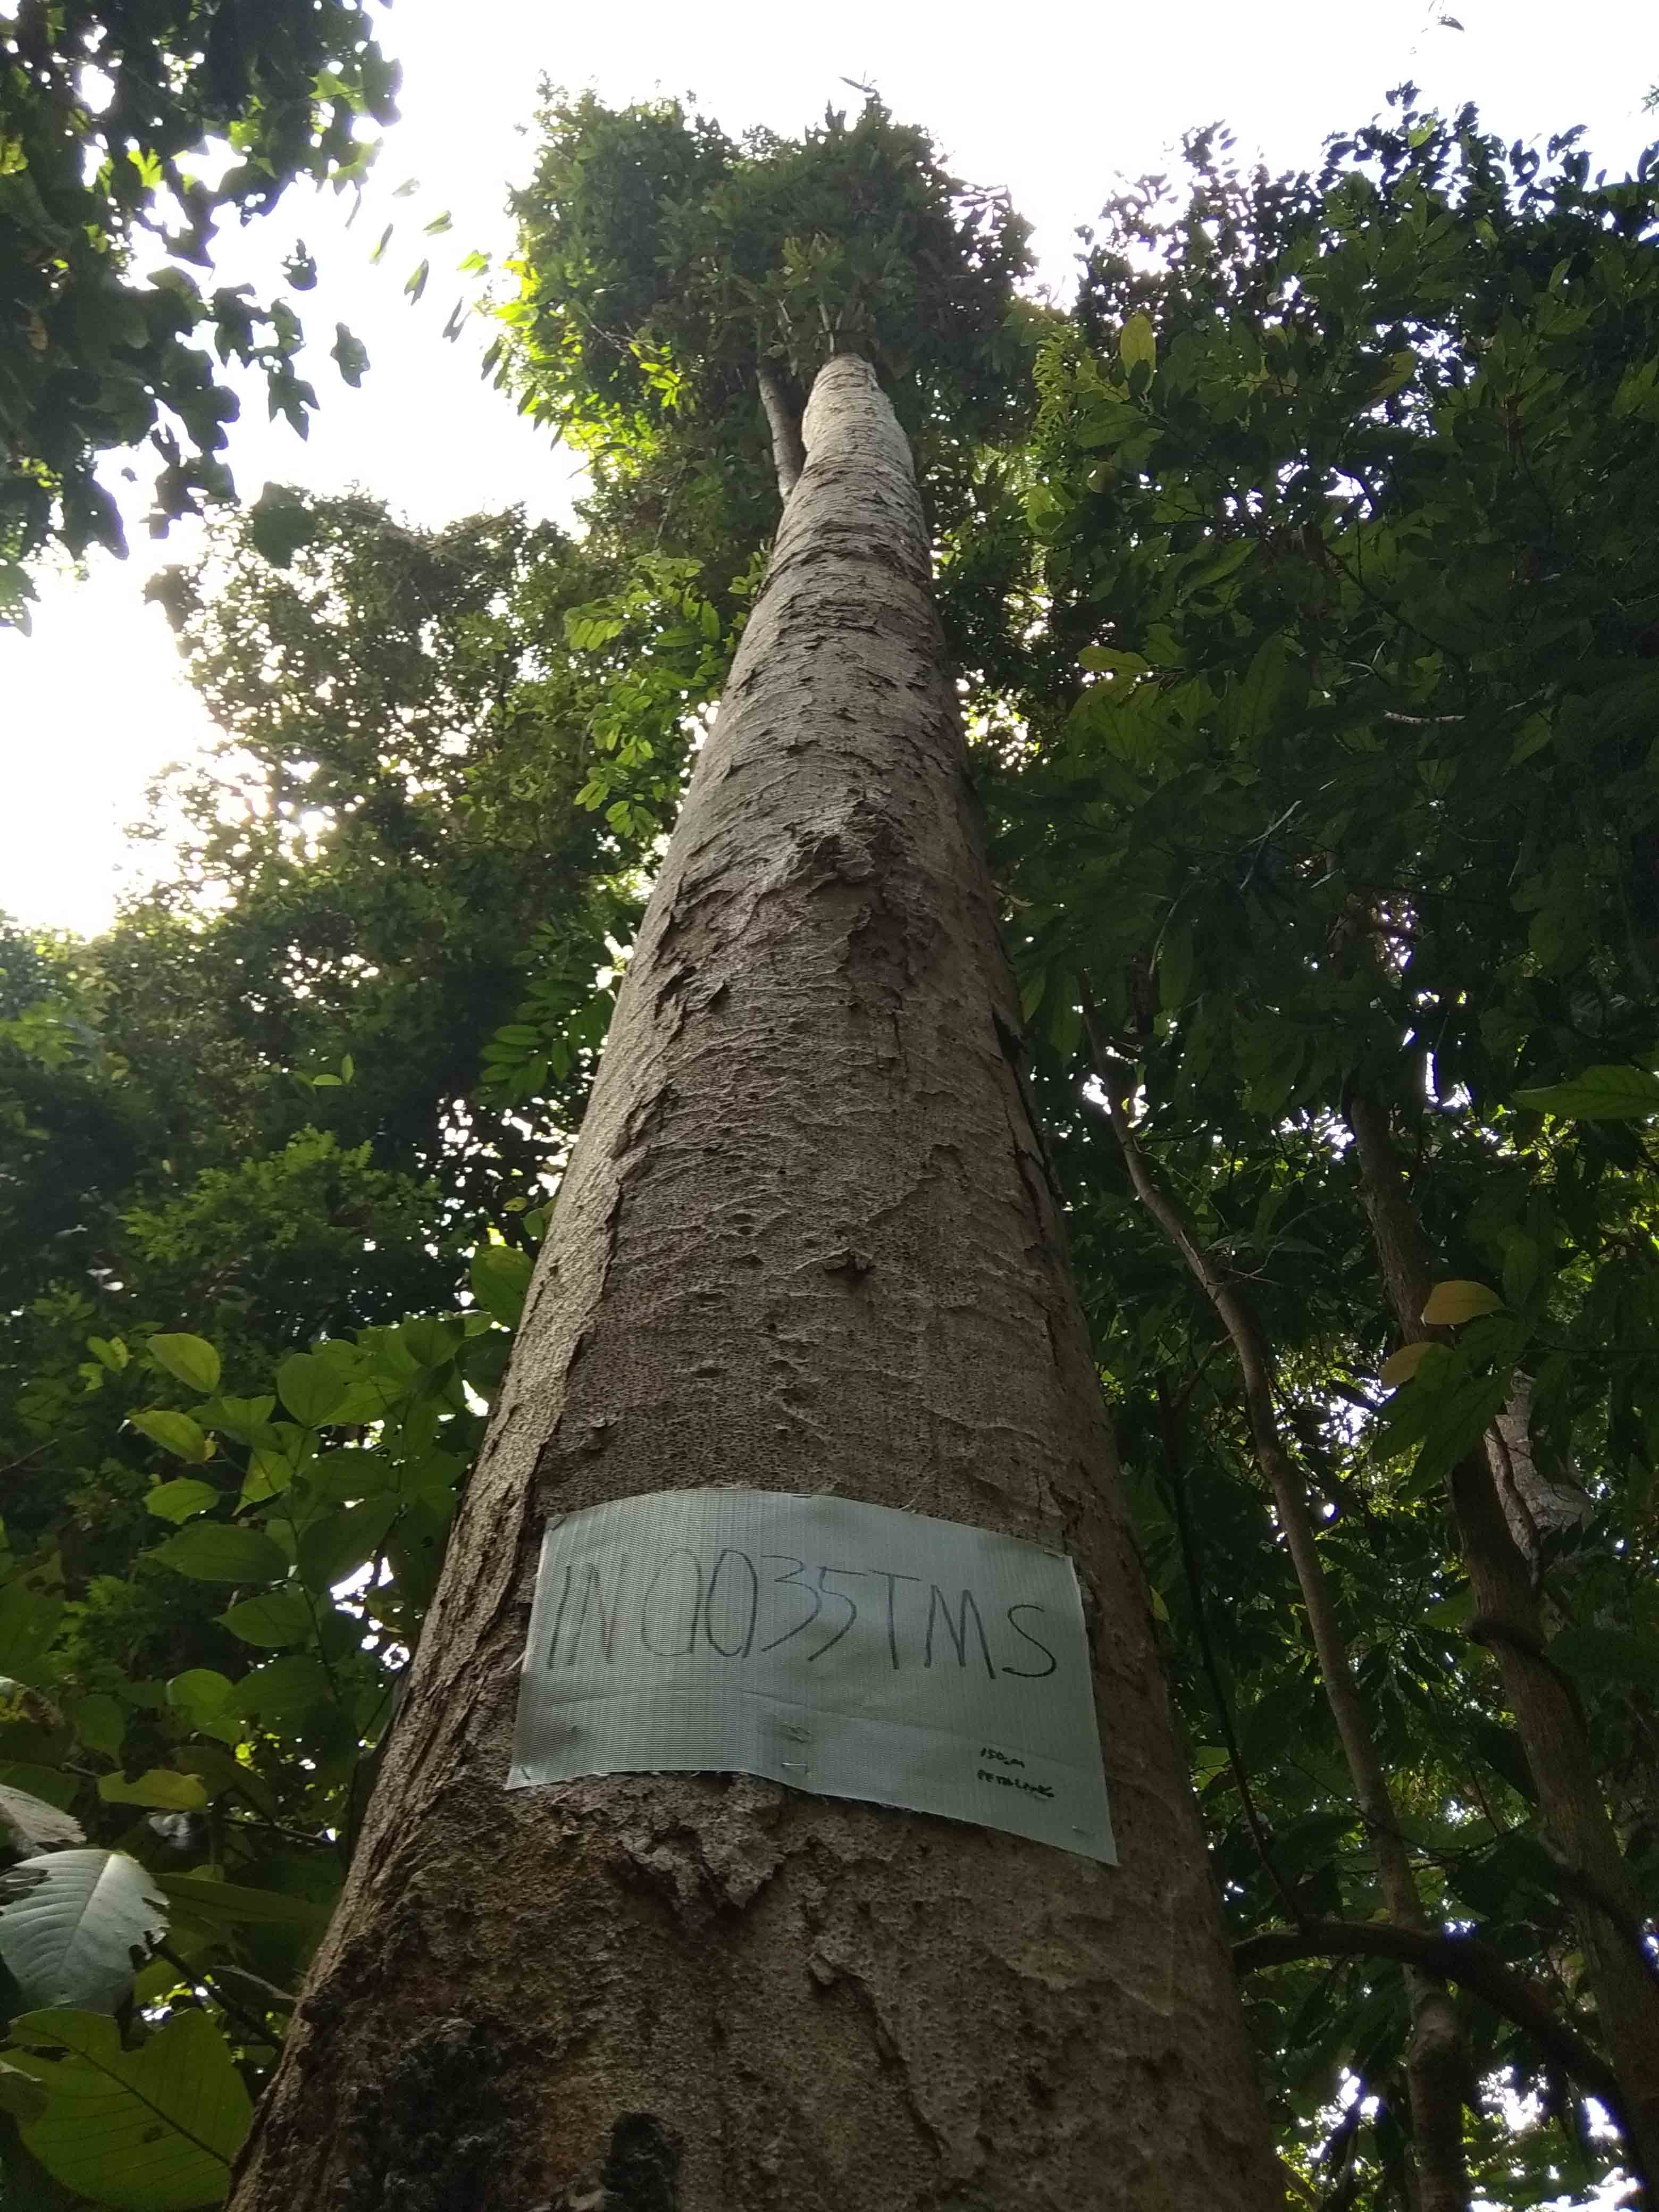 IN0035TMS
150cm
PETALANG